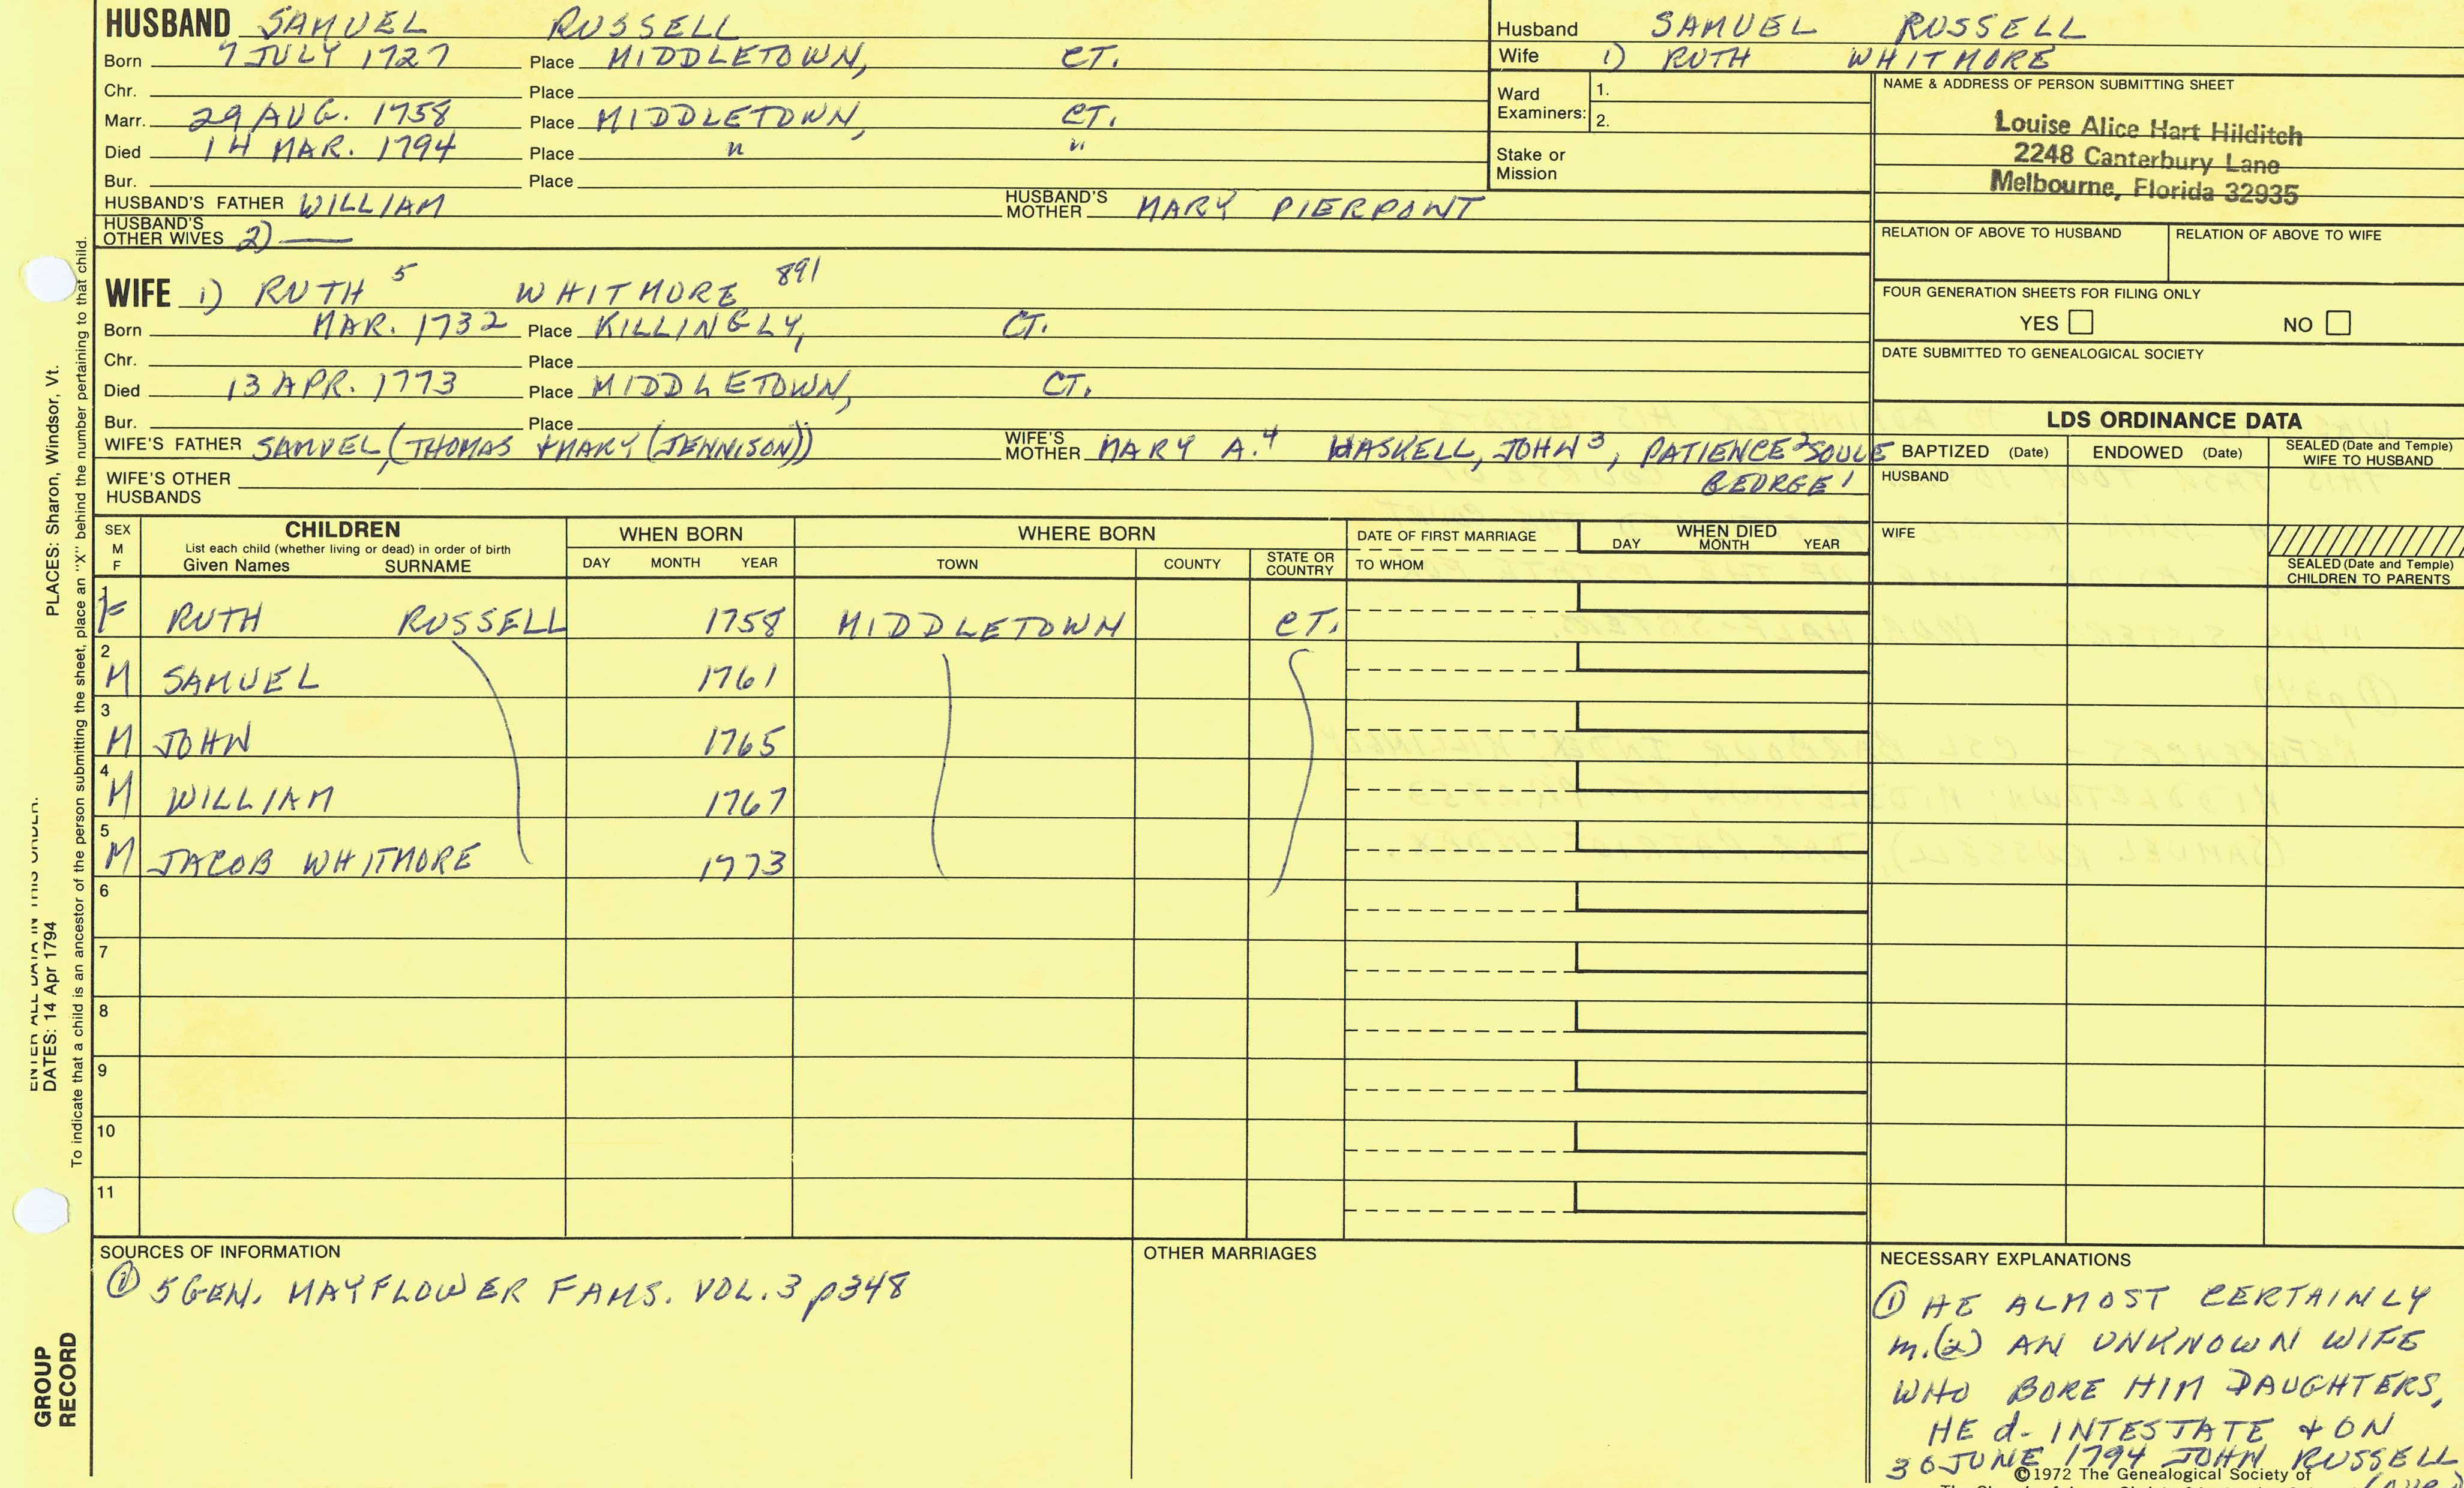 HUSBAND SAMUEL RUSSELL
Born 7 JULY 1727 Place MIDDLETOWN, CT.
Chr. Place
Marr. 29 AUG. 1758 Place MIDDLETOWN, CT.
Died 14 MAR. 1794 Place " "
Bur. Place
HUSBAND'S FATHER WILLIAM HUSBAND'S MOTHER MARY PIERPONT
HUSBAND'S OTHER WIVES 2) —
WIFE 1) RUTH 5 WHITMORE 891
Born MAR. 1732 Place KILLINGLY, CT.
Chr. Place
Died 13 APR. 1773 Place MIDDLETOWN, CT.
Bur. Place
WIFE'S FATHER SAMUEL, (THOMAS + MARY (JENNISON)) WIFE'S MOTHER MARY A.4 HASKELL, JOHN 3, PATIENCE 2 SOULE
GEORGE 1
WIFE'S OTHER HUSBANDS
Husband SAMUEL RUSSELL
Wife 1) RUTH WHITMORE
Ward Examiners: 1.
2.
Stake or Mission
NAME & ADDRESS OF PERSON SUBMITTING SHEET
Louise Alice Hart Hilditch
2248 Canterbury Lane
Melbourne, Florida 32935
RELATION OF ABOVE TO HUSBAND RELATION OF ABOVE TO WIFE
FOUR GENERATION SHEETS FOR FILING ONLY
YES NO
DATE SUBMITTED TO GENEALOGICAL SOCIETY
LDS ORDINANCE DATA
BAPTIZED (Date) ENDOWED (Date) SEALED (Date and Temple) WIFE TO HUSBAND
HUSBAND
WIFE
SEALED (Date and Temple) CHILDREN TO PARENTS
SEX M F CHILDREN WHEN BORN WHERE BORN DATE OF FIRST MARRIAGE WHEN DIED
List each child (whether living or dead) in order of birth
Given Names SURNAME DAY MONTH YEAR TOWN COUNTY STATE OR COUNTRY TO WHOM DAY MONTH YEAR
1 F RUTH RUSSELL 1758 MIDDLETOWN CT.
2 M SAMUEL 1761
3 M JOHN 1765
4 M WILLIAM 1767
5 M JACOB WHITMORE 1773
6
7
8
9
10
11
SOURCES OF INFORMATION
① 5 GEN. MAYFLOWER FAMS. VOL. 3 p348
OTHER MARRIAGES
NECESSARY EXPLANATIONS
① HE ALMOST CERTAINLY
m.(2) AN UNKNOWN WIFE
WHO BORE HIM DAUGHTERS,
HE d. INTESTATE + ON
30 JUNE 1794 JOHN RUSSELL
©1972 The Genealogical Society of
PLACES: Sharon, Windsor, Vt.
ENTER ALL DATA IN THIS ORDER:
DATES: 14 Apr 1794
To indicate that a child is an ancestor of the person submitting the sheet, place an "X" behind the number pertaining to that child.
GROUP
RECORD